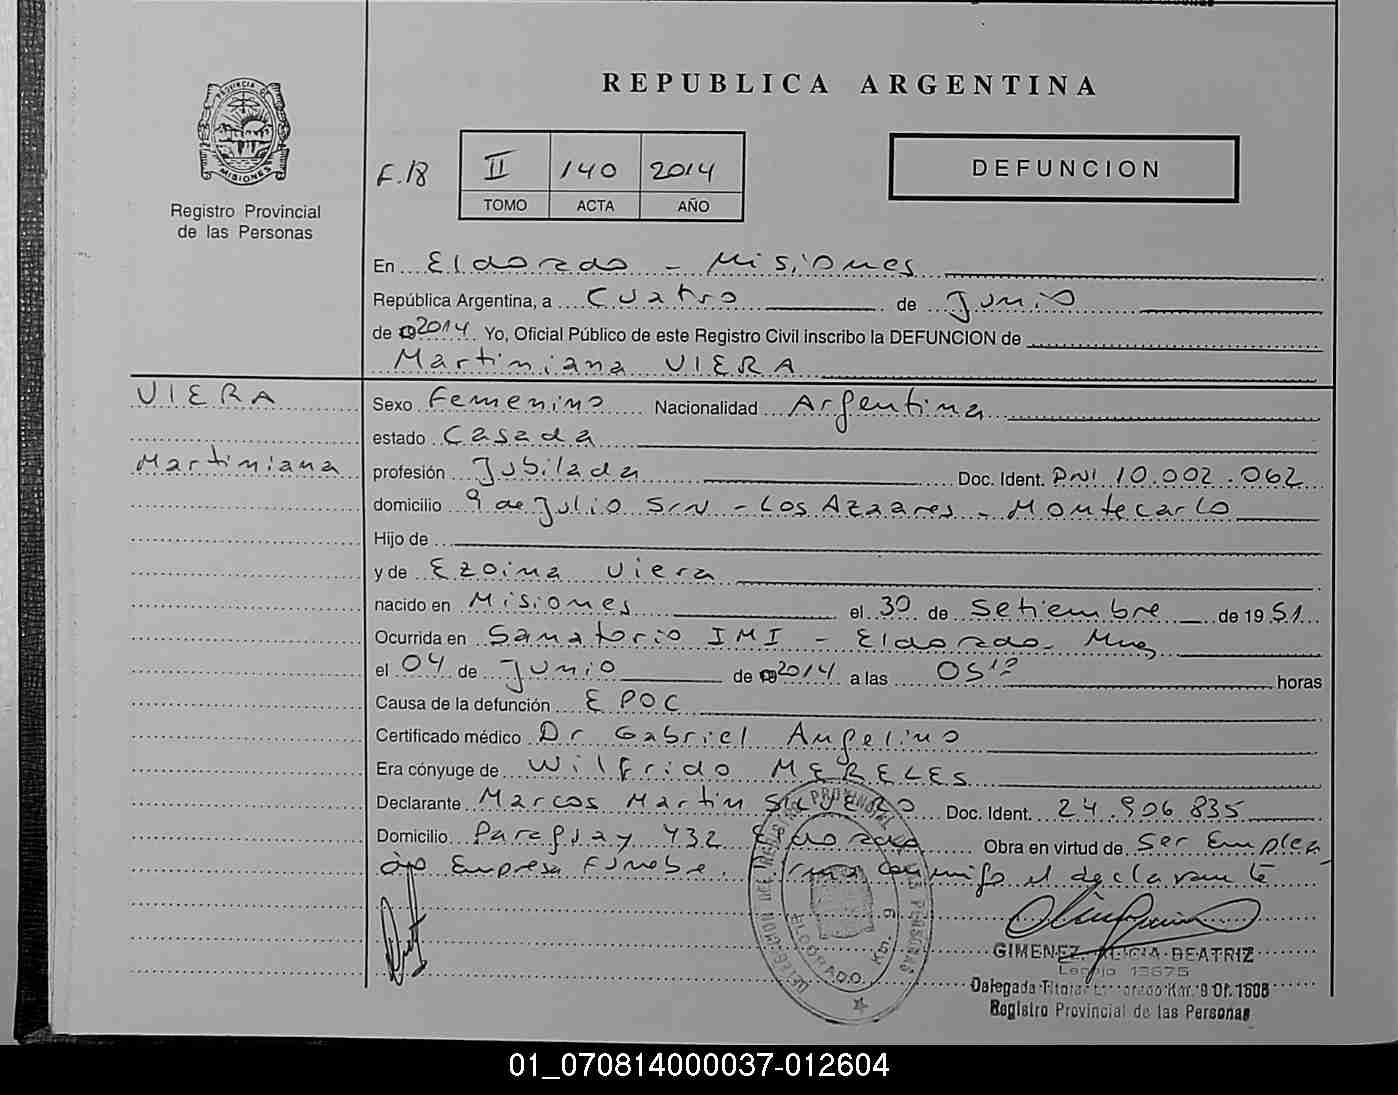 REPUBLICA ARGENTINA
PROVINCIA DE
MISIONES
Registro Provincial
de las Personas
F. 18
II 140 2014
TOMO ACTA AÑO
DEFUNCION
En Eldorado - Misiones
República Argentina, a Cuatro de Junio
de 2014 Yo, Oficial Público de este Registro Civil inscribo la DEFUNCION de
Martiniana VIERA
VIERA
Martiniana
Sexo Femenino Nacionalidad Argentina
estado Casada
profesión Jubilada Doc. Ident. DNI 10.002.062
domicilio 9 de Julio S/N - Los Azaares - Montecarlo
Hijo de
y de Ezoina Viera
nacido en Misiones el 30 de Setiembre de 1951
Ocurrida en Sanatorio IMI - Eldorado - Mnes
el 04 de Junio de 2014 a las 05 horas
Causa de la defunción EPOC
Certificado médico Dr Gabriel Angelino
Era cónyuge de Wilfrido MERELES
Declarante Marcos Martin Doc. Ident. 24.906.835
Domicilio Paraguay 432 Eldorado Obra en virtud de Ser Emplea
do Empresa Fúnebre. Firma conmigo el declarante
DELEGACION DEL REGISTRO PROVINCIAL DE LAS PERSONAS
ELDORADO Km. 9
GIMENEZ ALICIA BEATRIZ
Legajo 13675
Delegada Titular Eldorado Km. 9 Of. 1608
Registro Provincial de las Personas
01_070814000037-012604